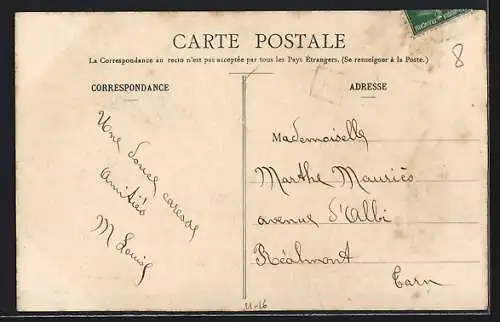 CARTE POSTALE
La Correspondance au recto n'est pas acceptée par tous les Pays Étrangers. (Se renseigner à la Poste.)
CORRESPONDANCE
Une douce caresse
Amitiés
M Louis
ADRESSE
Mademoiselle
Marthe Mauriès
avenue d'Albi
Réalmont
Tarn
8
11-16